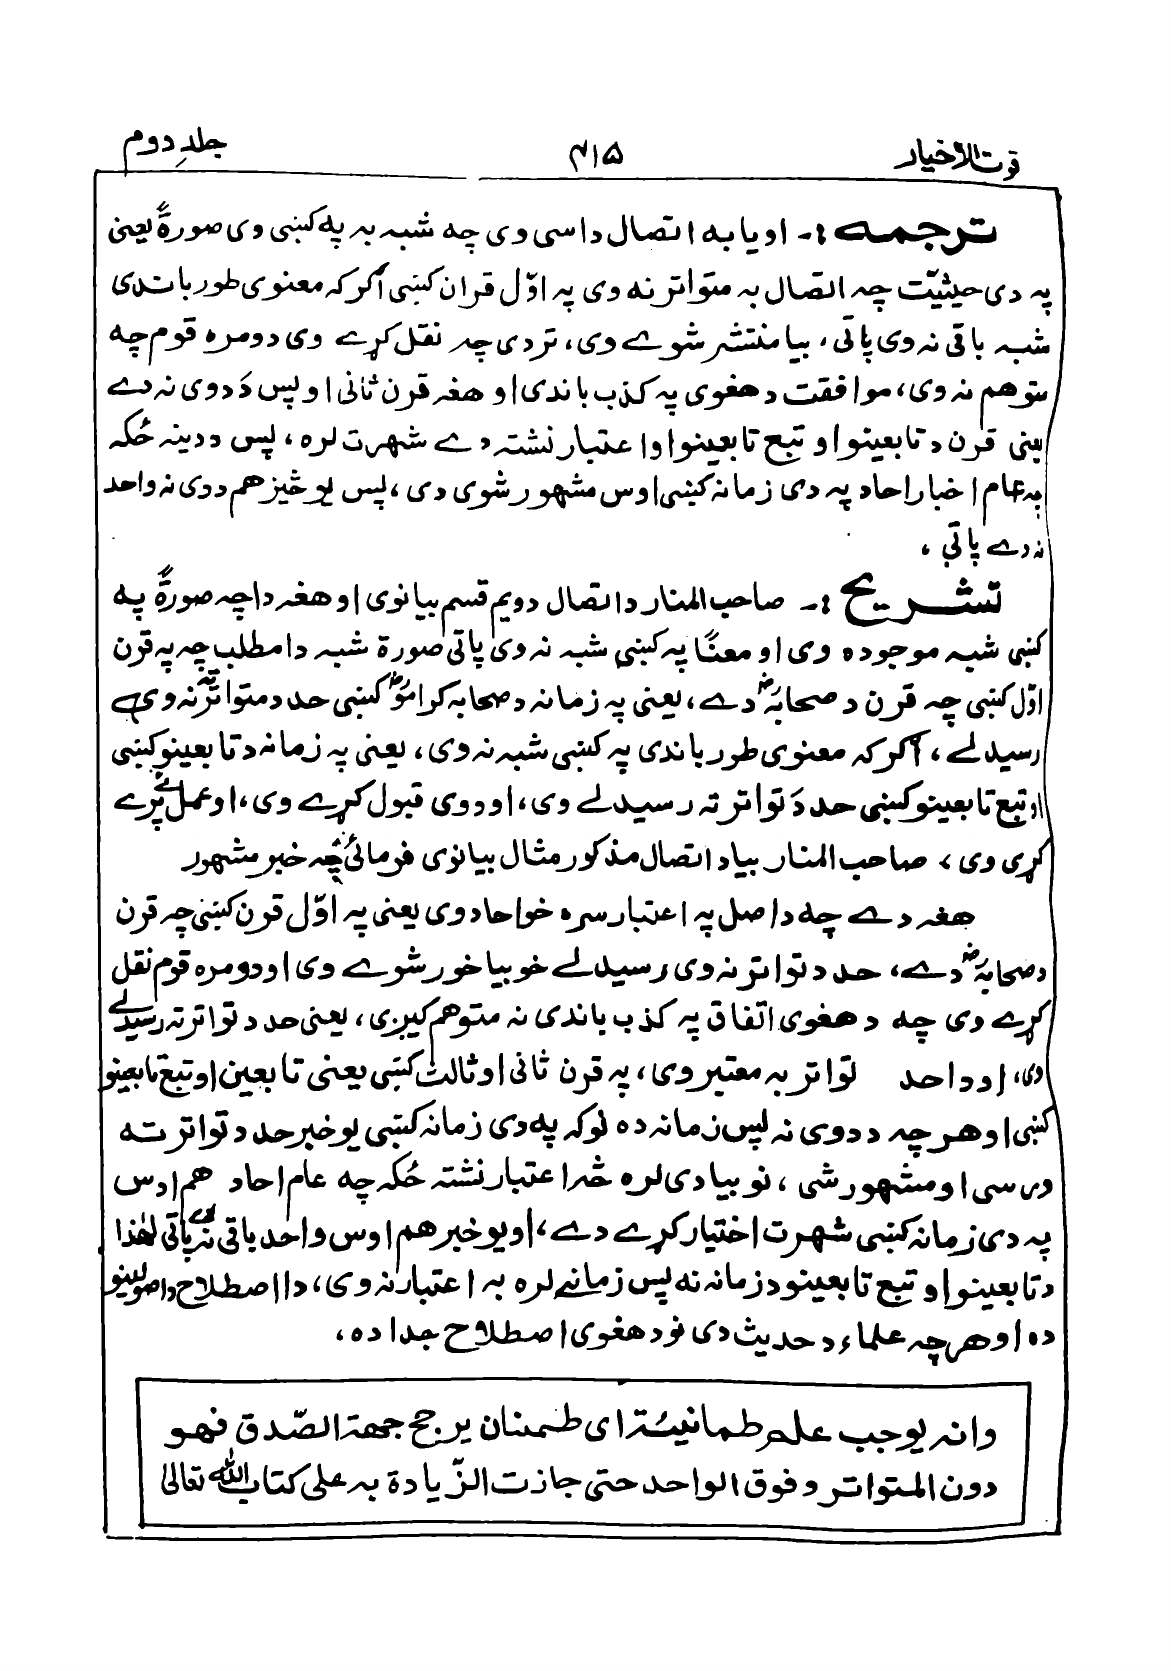 قوت الاخیار ۴۱۵ جلدِ دوم
ترجمه :- او یا به اتصال داسی وی چه شبه به په کښی وی صورةً یعنی
په دی حیثیت چه اتصال به متواتر نه وی په اوّل قران کښی اګر که معنوی طور باندی
شبه باقی نه وی پاتی، بیا منتشر شوے وی، تر دی چه نقل کړے وی دومره قوم چه
متوهم نه وی، موافقت د هغوی په کذب باندی او هغه قرن ثانی او پس دَ دوی نه دے
یعنی قرن د تابعینو او تبع تابعینو او اعتبار نشته دے شهرت لره، پس د دینه ځکه
په عام اخبار احاد په دی زمانه کښی اوس مشهور شوی دی، پس یو څیز هم د دی نه واحد
نه دے پاتی،
تشریح :- صاحب المنار د اتصال دویم قسم بیانوی او هغه دا چه صورةً په
کښی شبه موجوده وی او معنًا په کښی شبه نه وی پاتی صورة شبه دا مطلب چه په قرن
اوّل کښی چه قرن د صحابهؓ دے، یعنی په زمانه د صحابه کراموؓ کښی حد د متواتر ته نه وی
رسیدلے، اګر که معنوی طور باندی په کښی شبه نه وی، یعنی په زمانه د تابعینو کښی
او تبع تابعینو کښی حد دَ تواتر ته رسیدلے وی، او دوی قبول کړے وی، او عمل ئے پرے
کړی وی، صاحب المنار بیا د اتصال مذکور مثال بیانوی فرمائی چه خبر مشهور
هغه دے چه د اصل په اعتبار سره خو احاد وی یعنی په اوّل قرن کښی چه قرن
د صحابهؓ دے، حد د تواتر نه وی رسیدلے خو بیا خور شوے وی او دومره قوم نقل
کړے وی چه د هغوی اتفاق په کذب باندی نه متوهم کیږی، یعنی حد د تواتر ته رسیدلے
وی، او دا حد تواتر به معتبر وی، په قرن ثانی او ثالث کښی یعنی تابعین او تبع تابعینو
کښی او هر چه د دوی نه پس زمانه ده لوکه په دی زمانه کښی یو خبر حد د تواتر ته
ورسی او مشهور شی، نو بیا دی لره څه اعتبار نشته ځکه چه عام احاد هم اوس
په دی زمانه کښی شهرت اختیار کړے دے، او یو خبر هم اوس واحد باقی نه دے پاتی لهٰذا
د تابعینو او تبع تابعینو د زمانه نه پس زمانے لره به اعتبار نه وی، دا اصطلاح د اصولینو
ده او هر چه علماء د حدیث دی نو د هغوی اصطلاح جدا ده،
وانه یوجب علم طمانیئة ای طمئنان یرجح جهة الصّدق فهو
دون المتواتر و فوق الواحد حتی جازت الزّیادة به علی کتاب الله تعالیٰ